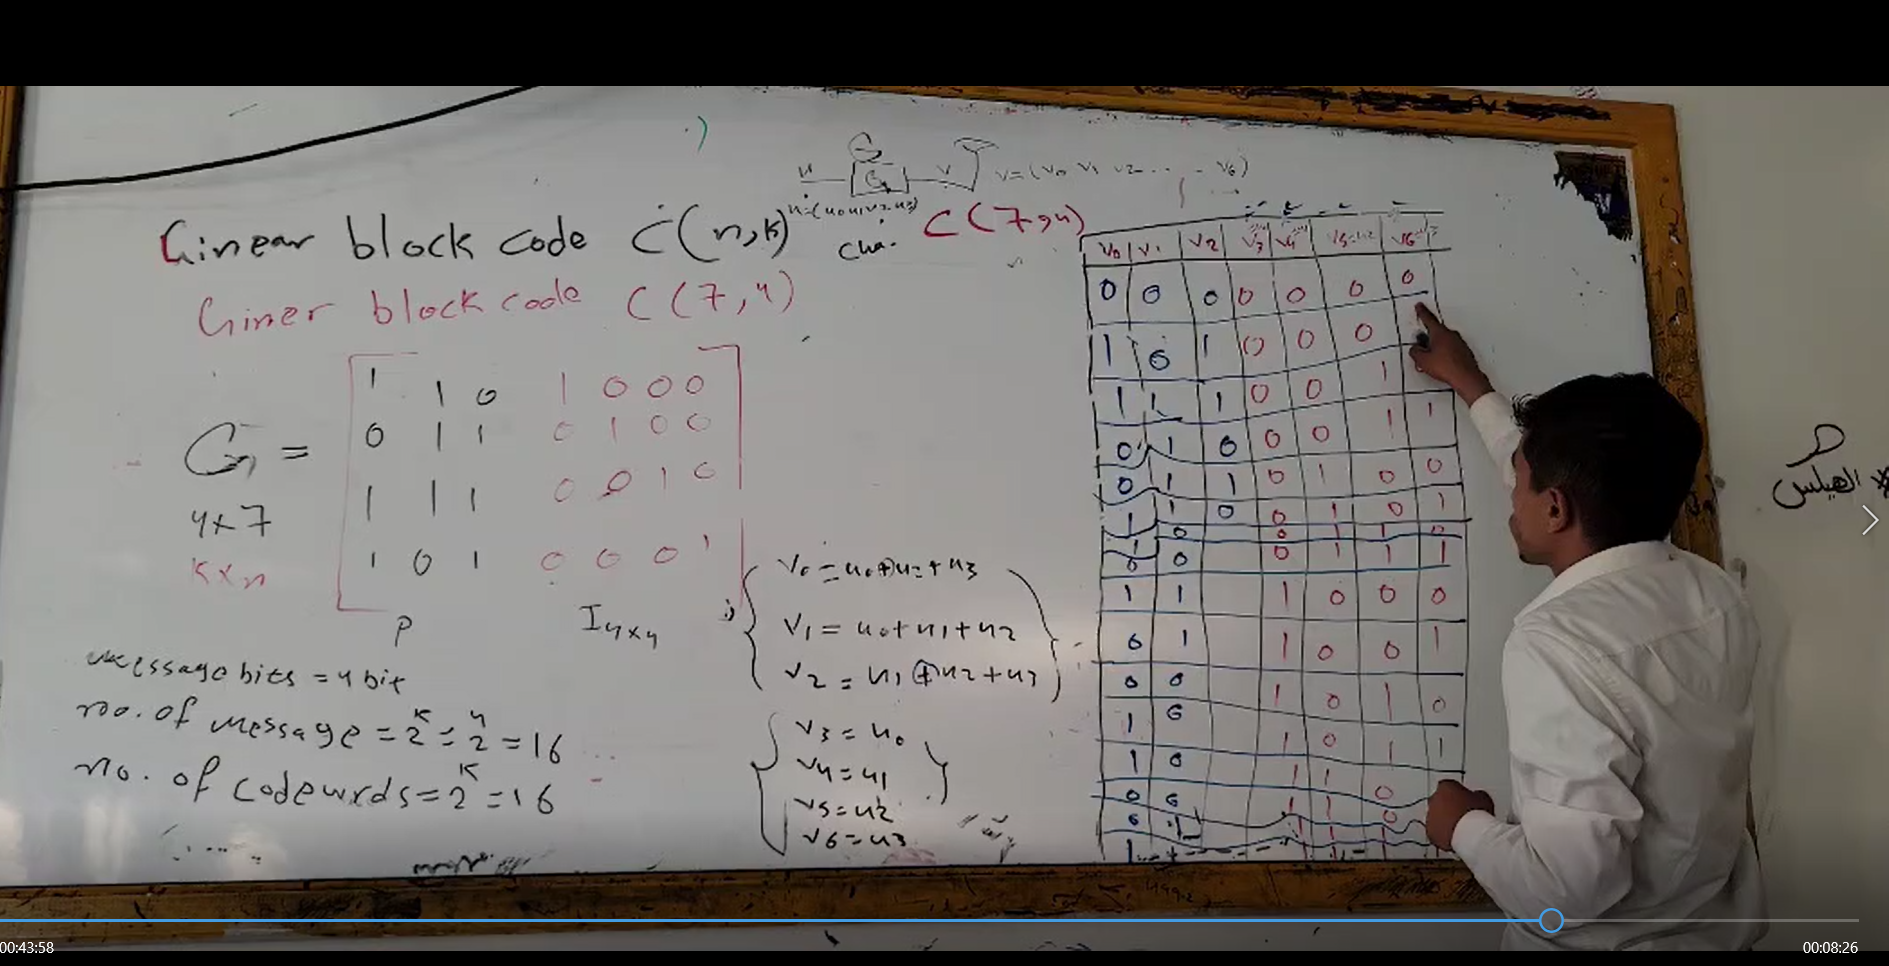 u G v v=(v0 v1 v2 ... v6)
u=(u0 u1 u2 u3)
Linear block code C(n,k) cha. C(7,4)
Liner block code C(7,4)
G =
4x7
kxn
1 1 0 1 0 0 0
0 1 1 0 1 0 0
1 1 1 0 0 1 0
1 0 1 0 0 0 1
P I4x4
message bits = 4 bit
no. of message = 2^k = 2^4 = 16
no. of codewrds = 2^k = 16
v0 = u0 ⊕ u2 + u3
v1 = u0 + u1 + u2
v2 = u1 ⊕ u2 + u3
v3 = u0
v4 = u1
v5 = u2
v6 = u3
v0 v1 v2 v3 v4 v5 v6
0 0 0 0 0 0 0
1 0 1 0 0 0
1 1 1 0 0 1
0 1 0 0 0 1 1
0 1 1 0 1 0 0
1 1 0 0 1 0 1
1 0 0 1 1 0
0 0 0 1 1 1
1 1 1 0 0 0
0 1 1 0 0 1
0 0 1 0 1 0
1 0 1 0 1 1
1 0 1 1 0
0 0 1 1 0
0 1 1 1 1
1
00:43:58
00:08:26